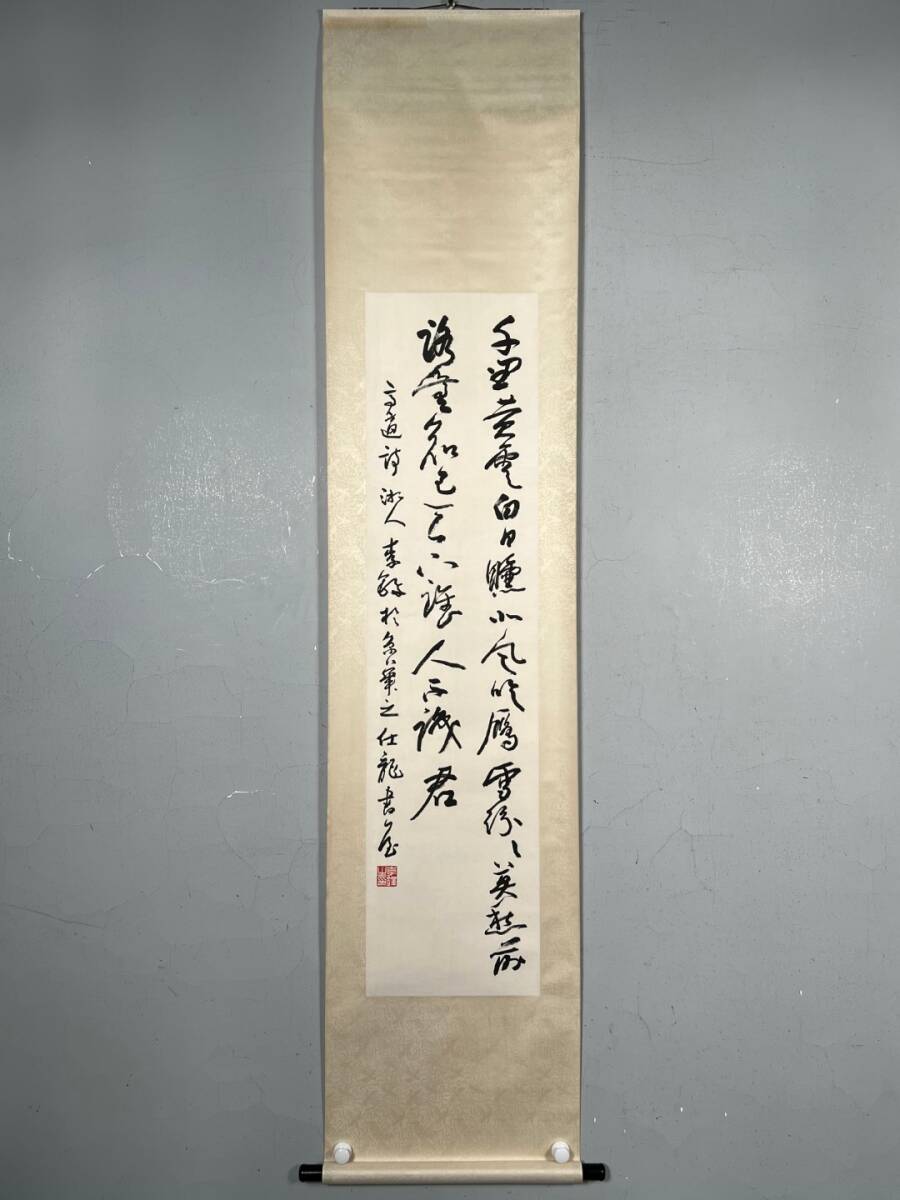 千里黄雲白日曛北風吹雁雪紛〻莫愁前
路無知己天下誰人不識君
高適詩 湘人李鐸於京華之仕龍書屋